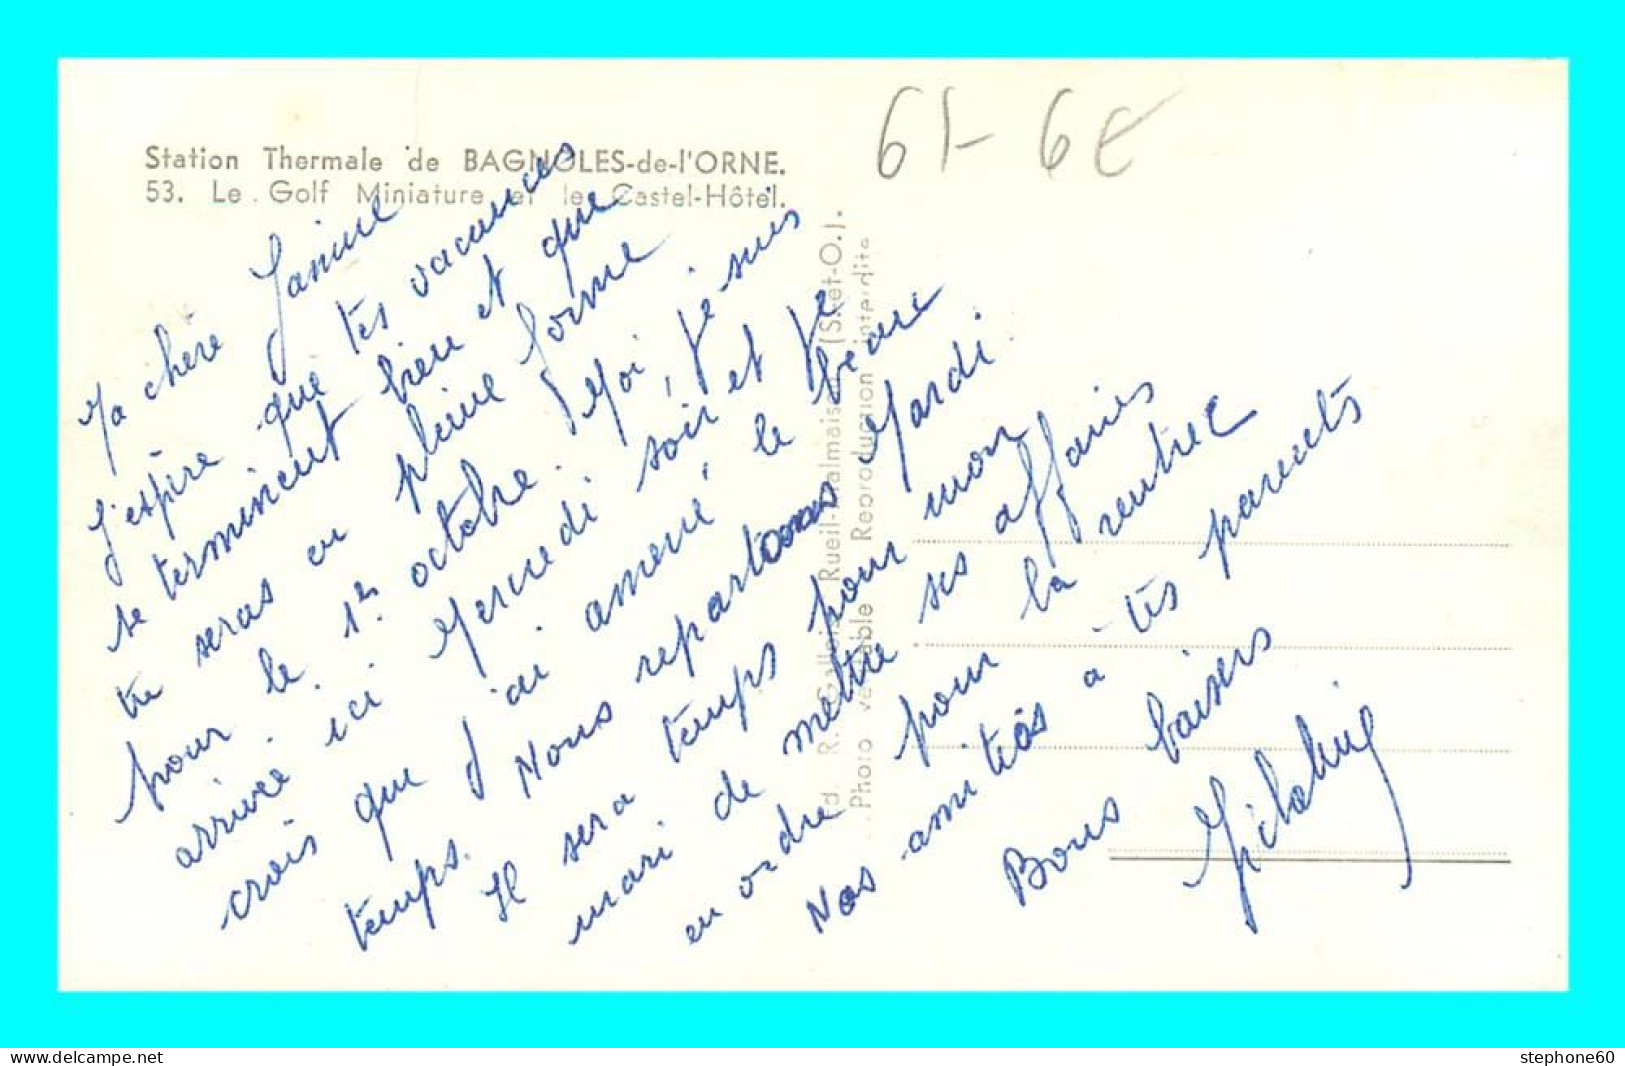 61- 6€
Station Thermale de BAGNOLES-de-l'ORNE.
53. Le Golf Miniature et le Castel-Hôtel.
Ma chère Janine
J'espère que tes vacances
se terminent bien et que
tu seras en pleine forme
pour le 1er octobre. Moi, je suis
arrivée ici Mercredi soir et je
crois que j'ai amené le beau
temps. Nous repartons Mardi.
Il sera temps pour mon
mari de mettre ses affaires
en ordre pour la rentrée
Nos amitiés à tes parents
Bons baisers
Ed. R. Gallois, Rueil-Malmaison (S.-et-O.).
Photo véritable Reproduction interdite
www.delcampe.net
stephone60